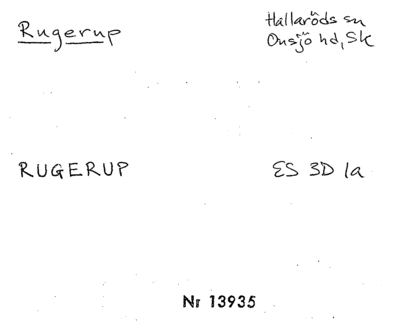 Rugerup
Hallaröds sn
Onsjö hd, Sk
RUGERUP
ES 3D 1a
Nr 13935